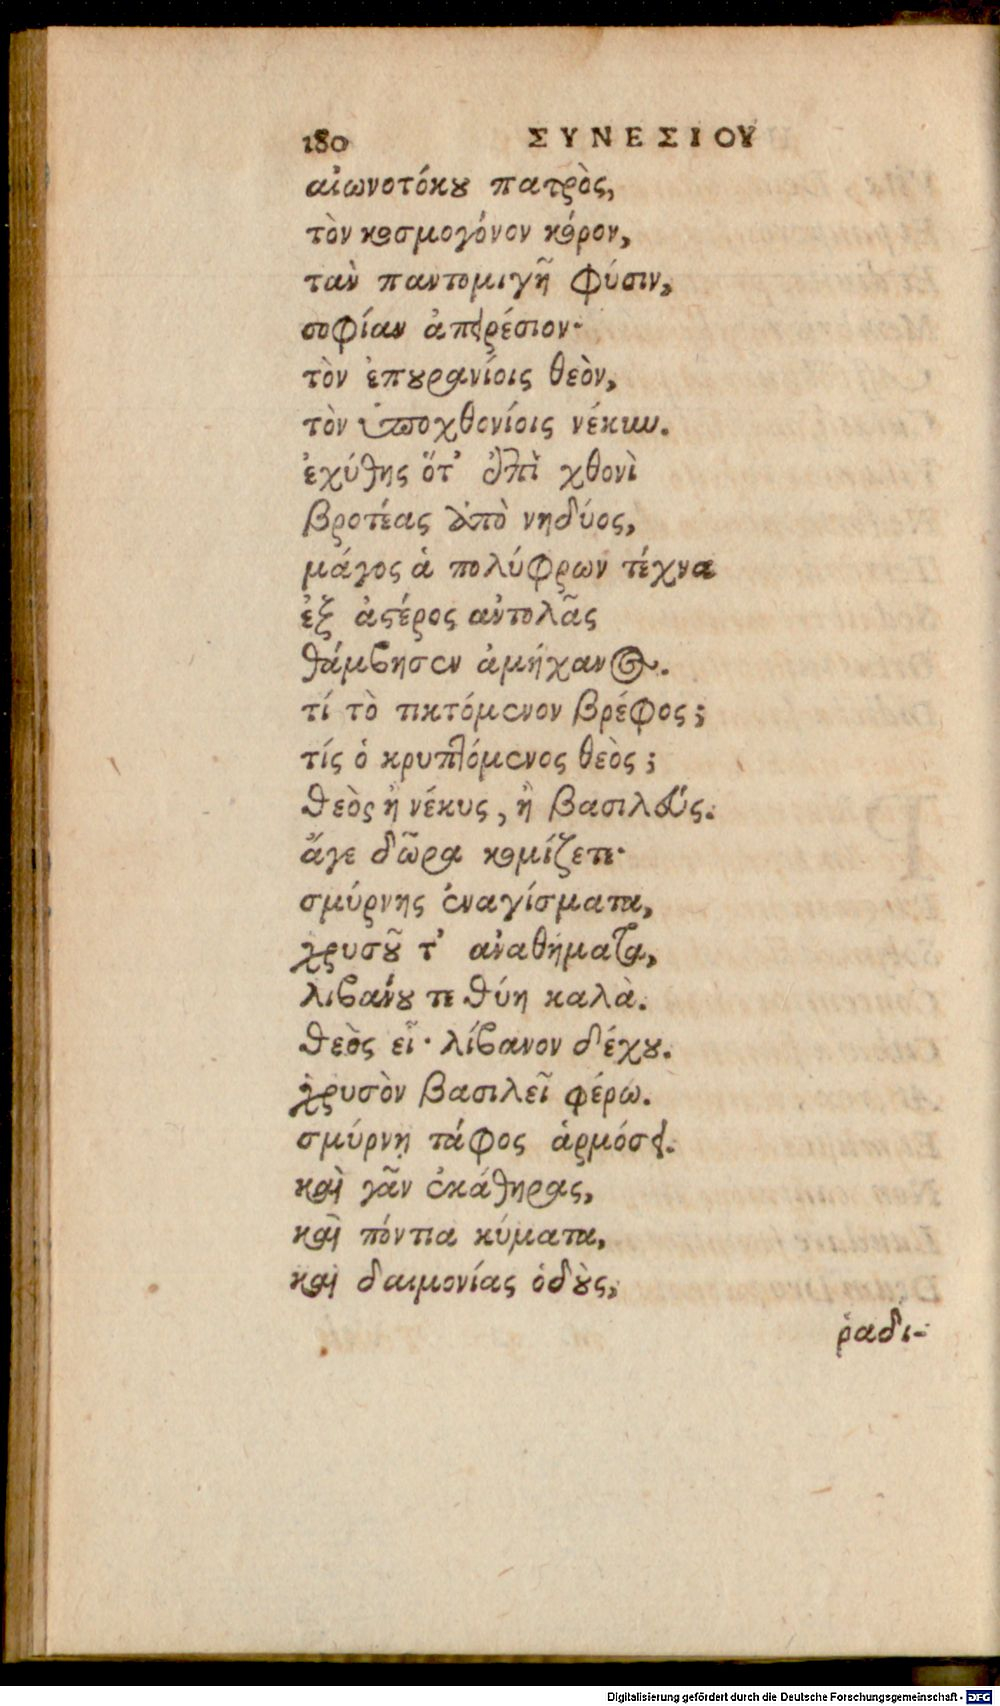 180 ΣΥΝΕΣΙΟΥ
αἰωνοτόκου πατρὸς,
τὸν κοσμογόνον κόρον,
τὰν παντομιγῆ φύσιν,
σοφίαν ἀπειρέσιον·
τὸν ἐπουρανίοις θεὸν,
τὸν ὑποχθονίοις νέκυν.
ἐχύθης ὅτ' ἐπὶ χθονὶ
βροτέας ἀπὸ νηδύος,
μάγος ἁ πολύφρων τέχνα
ἐξ ἀστέρος ἀντολᾶς
θάμβησεν ἀμήχανος.
τί τὸ τικτόμενον βρέφος;
τίς ὁ κρυπτόμενος θεὸς;
θεὸς ἢ νέκυς, ἢ βασιλεύς.
ἄγε δῶρα κομίζετε·
σμύρνης ἐναγίσματα,
χρυσοῦ τ' ἀναθήματα,
λιβάνου τε θύη καλὰ.
θεὸς εἶ· λίβανον δέχου.
χρυσὸν βασιλεῖ φέρω.
σμύρνῃ τάφος ἁρμόσει.
καὶ γᾶν ἐκάθηρας,
καὶ πόντια κύματα,
καὶ δαιμονίας ὁδοὺς,
ῥαδι-
Digitalisierung gefördert durch die Deutsche Forschungsgemeinschaft - DFG